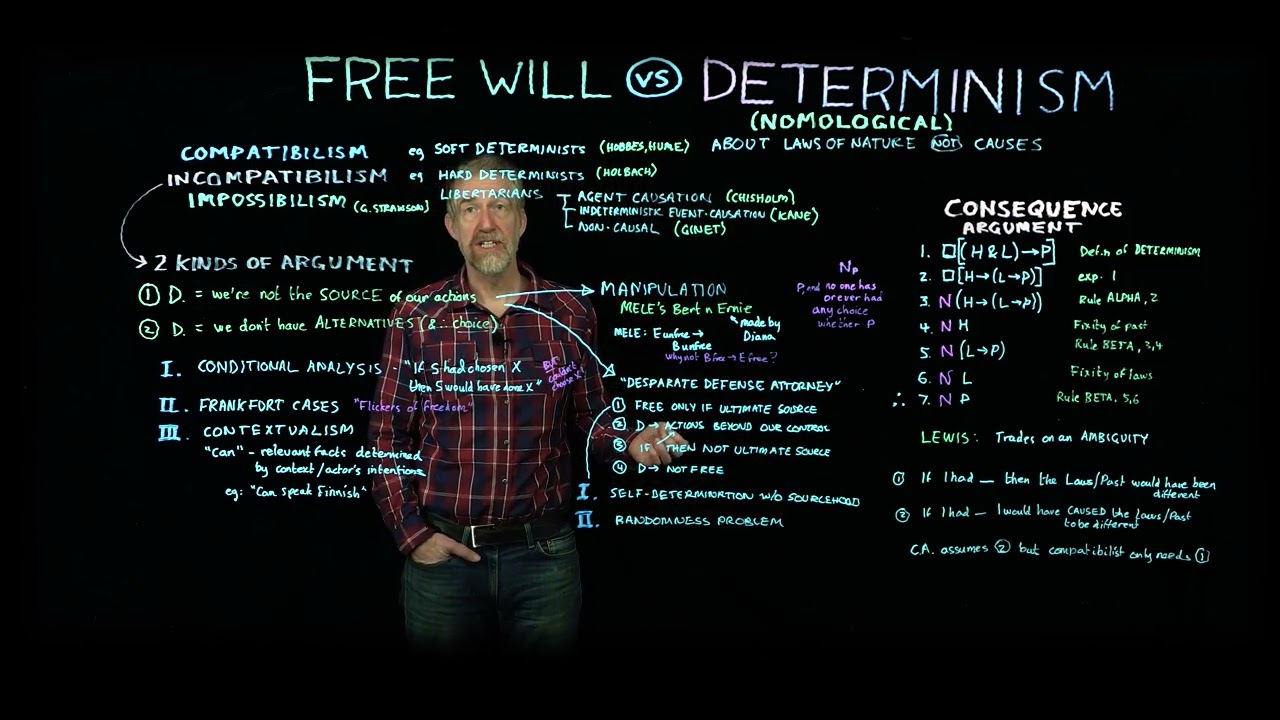 FREE WILL VS DETERMINISM
(NOMOLOGICAL)
COMPATIBILISM eg SOFT DETERMINISTS (HOBBES, HUME) ABOUT LAWS OF NATURE NOT CAUSES
INCOMPATIBILISM eg HARD DETERMINISTS (HOLBACH)
IMPOSSIBILISM (G. STRAWSON) LIBERTARIANS
AGENT CAUSATION (CHISHOLM)
INDETERMINISTIC EVENT-CAUSATION (KANE)
NON-CAUSAL (GINET)
2 KINDS OF ARGUMENT
① D. = we're not the SOURCE of our actions
② D. = we don't have ALTERNATIVES (& ∴ choice)
I. CONDITIONAL ANALYSIS - "If S had chosen X
then S would have done X"
BUT couldn't choose X
II. FRANKFORT CASES "Flickers of Freedom"
III. CONTEXTUALISM
"Can" - relevant facts determined
by context/actor's intentions
eg: "Can speak Finnish"
MANIPULATION
MELE'S Bert n Ernie
made by
Diana
MELE: E unfree →
B unfree
why not B free → E free?
NP
P, and no one has
or ever had
any choice
whether P
"DESPARATE DEFENSE ATTORNEY"
① FREE ONLY IF ULTIMATE SOURCE
② D → ACTIONS BEYOND OUR CONTROL
③ IF THEN NOT ULTIMATE SOURCE
④ D → NOT FREE
I. SELF-DETERMINATION W/O SOURCEHOOD
II. RANDOMNESS PROBLEM
CONSEQUENCE
ARGUMENT
1. □[(H & L) → P] Def.n of DETERMINISM
2. □[H → (L → P)] exp. 1
3. N (H → (L → P)) Rule ALPHA, 2
4. N H Fixity of past
5. N (L → P) Rule BETA, 3,4
6. N L Fixity of laws
∴ 7. N P Rule BETA, 5,6
LEWIS: Trades on an AMBIGUITY
① If I had __ then the Laws/Past would have been
different
② If I had __ I would have CAUSED the Laws/Past
to be different
C.A. assumes ② but compatibilist only needs ①